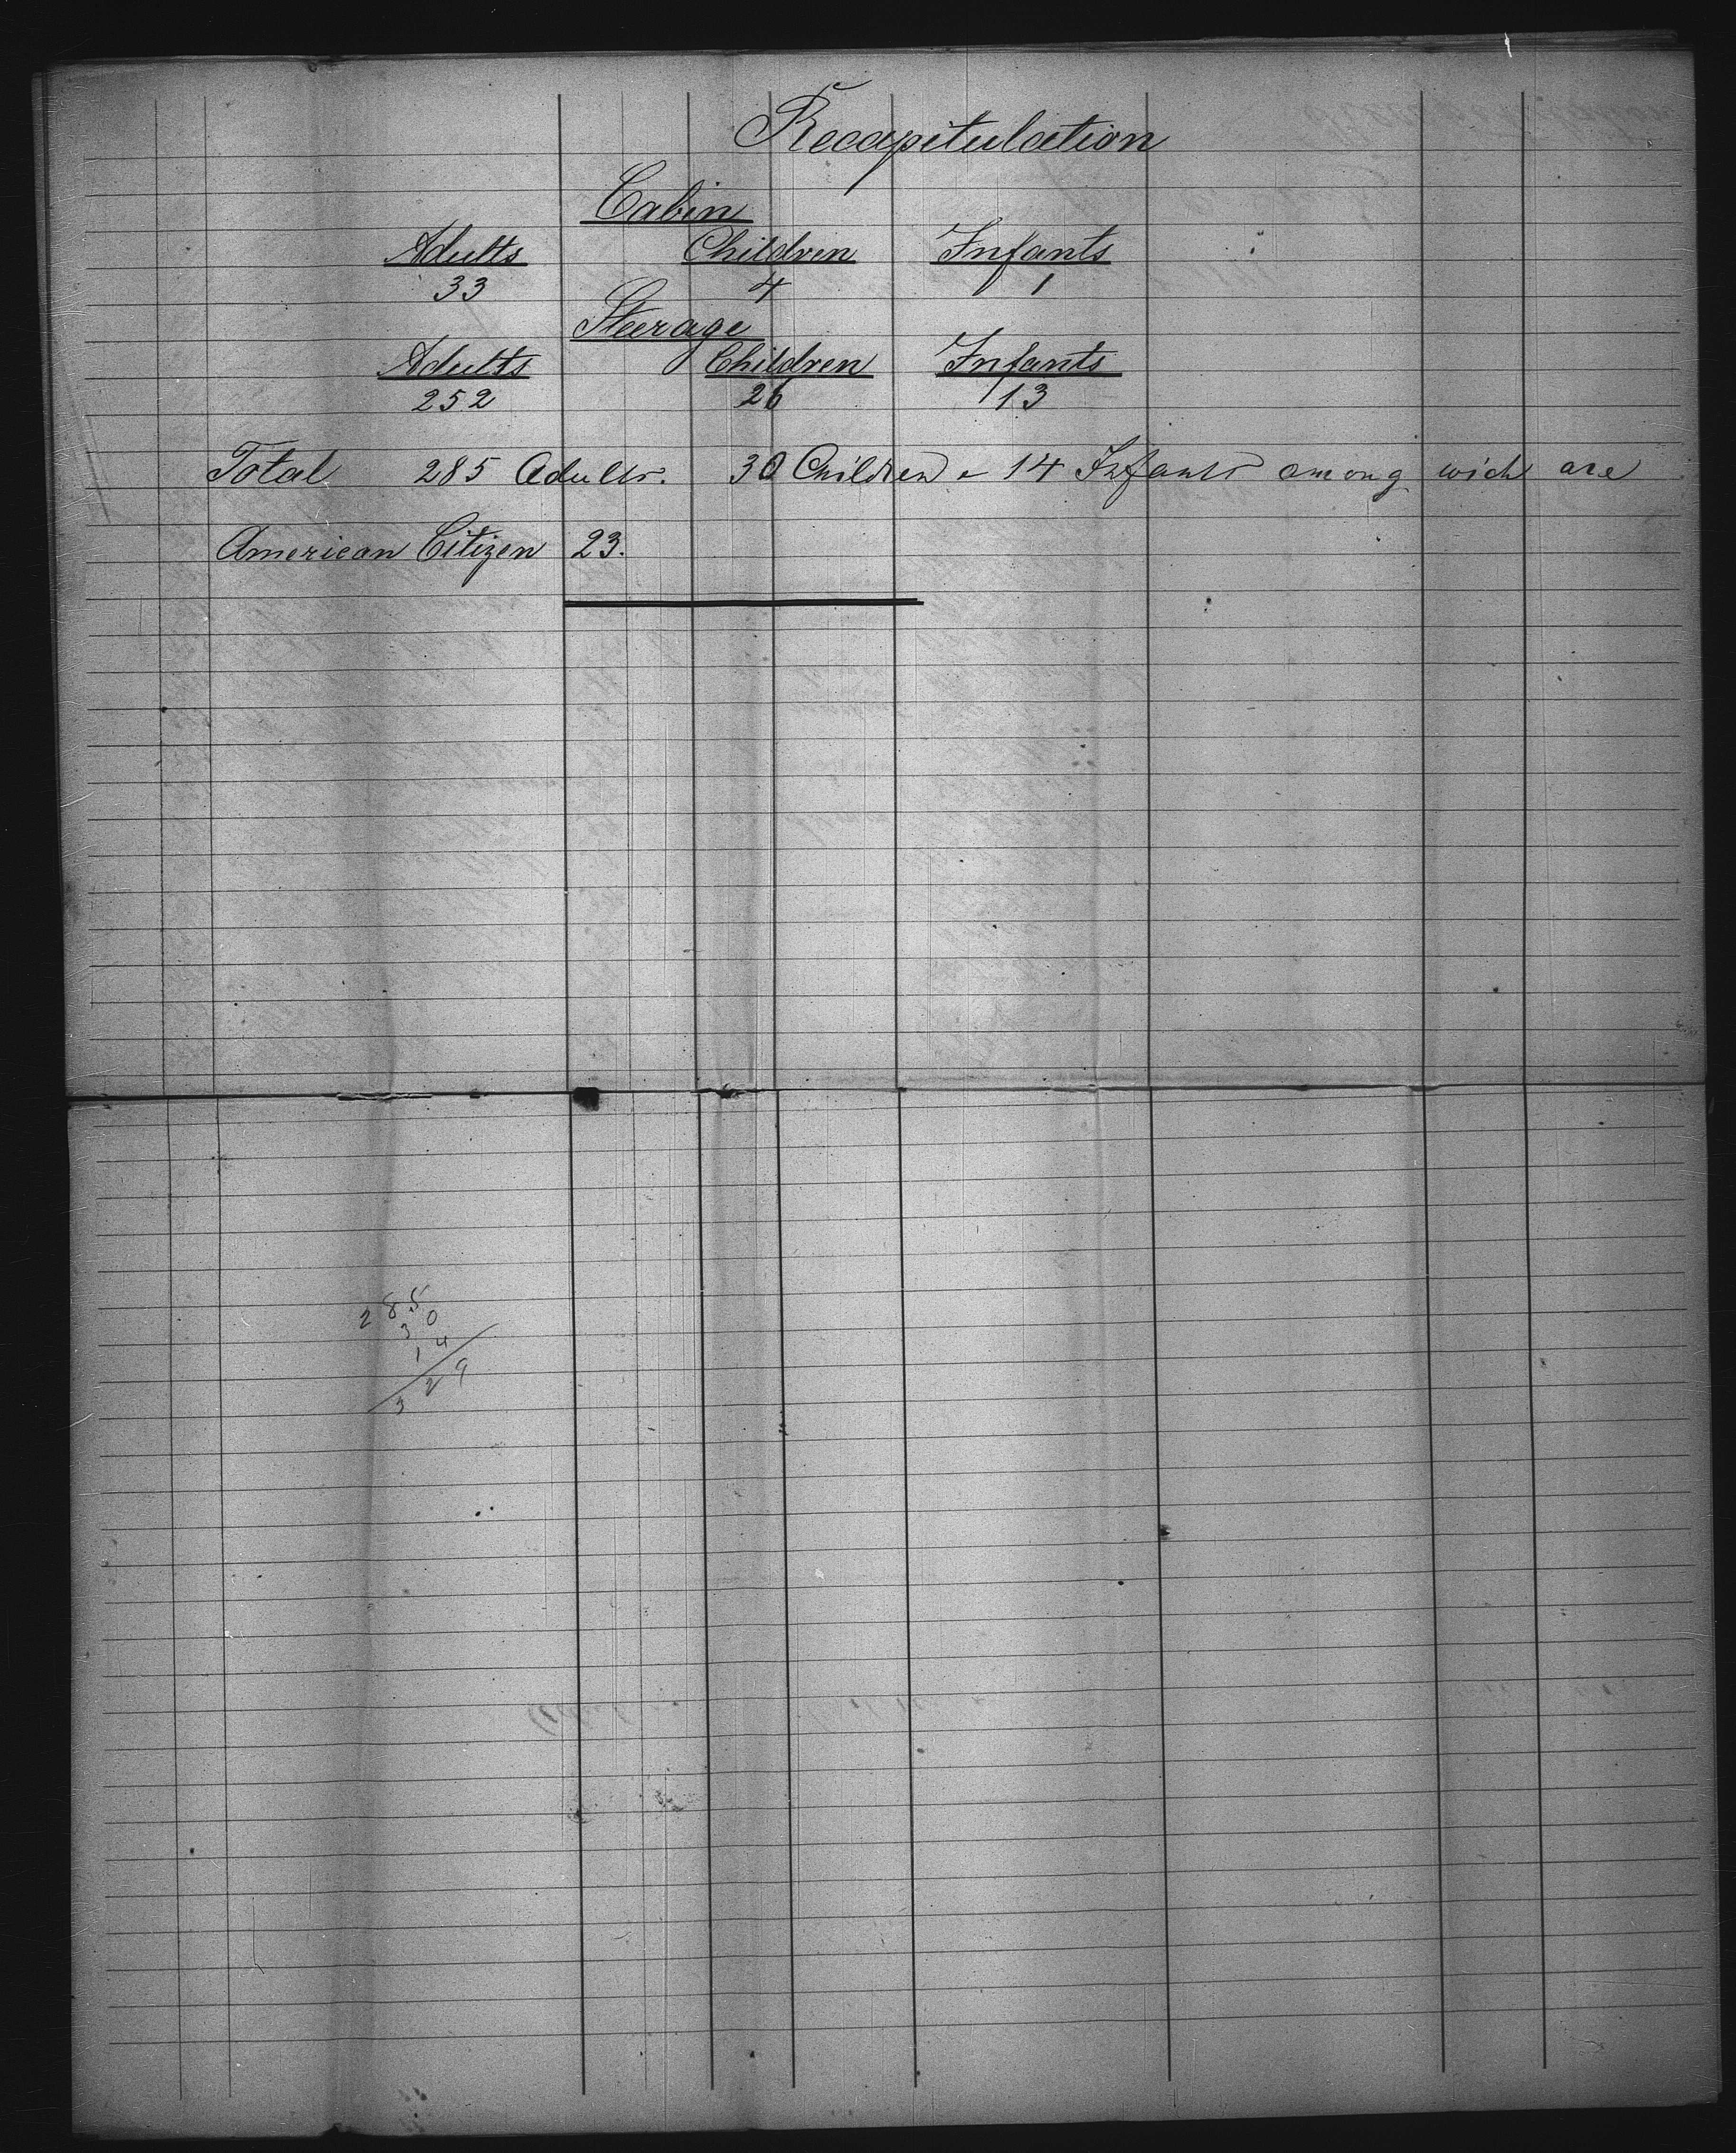 Recapitulation
Cabin
Adults Children Infants
33 4 1
Steerage
Adults Children Infants
252 26 13
Total 285 Adults. 30 Children & 14 Infants among wich are
American Citizen 23.
285
30
14
329